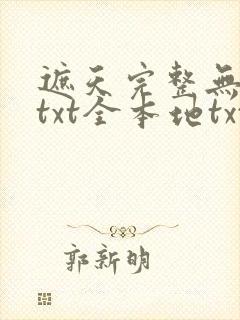 遮天完整無
txt全本地tx
郭新明